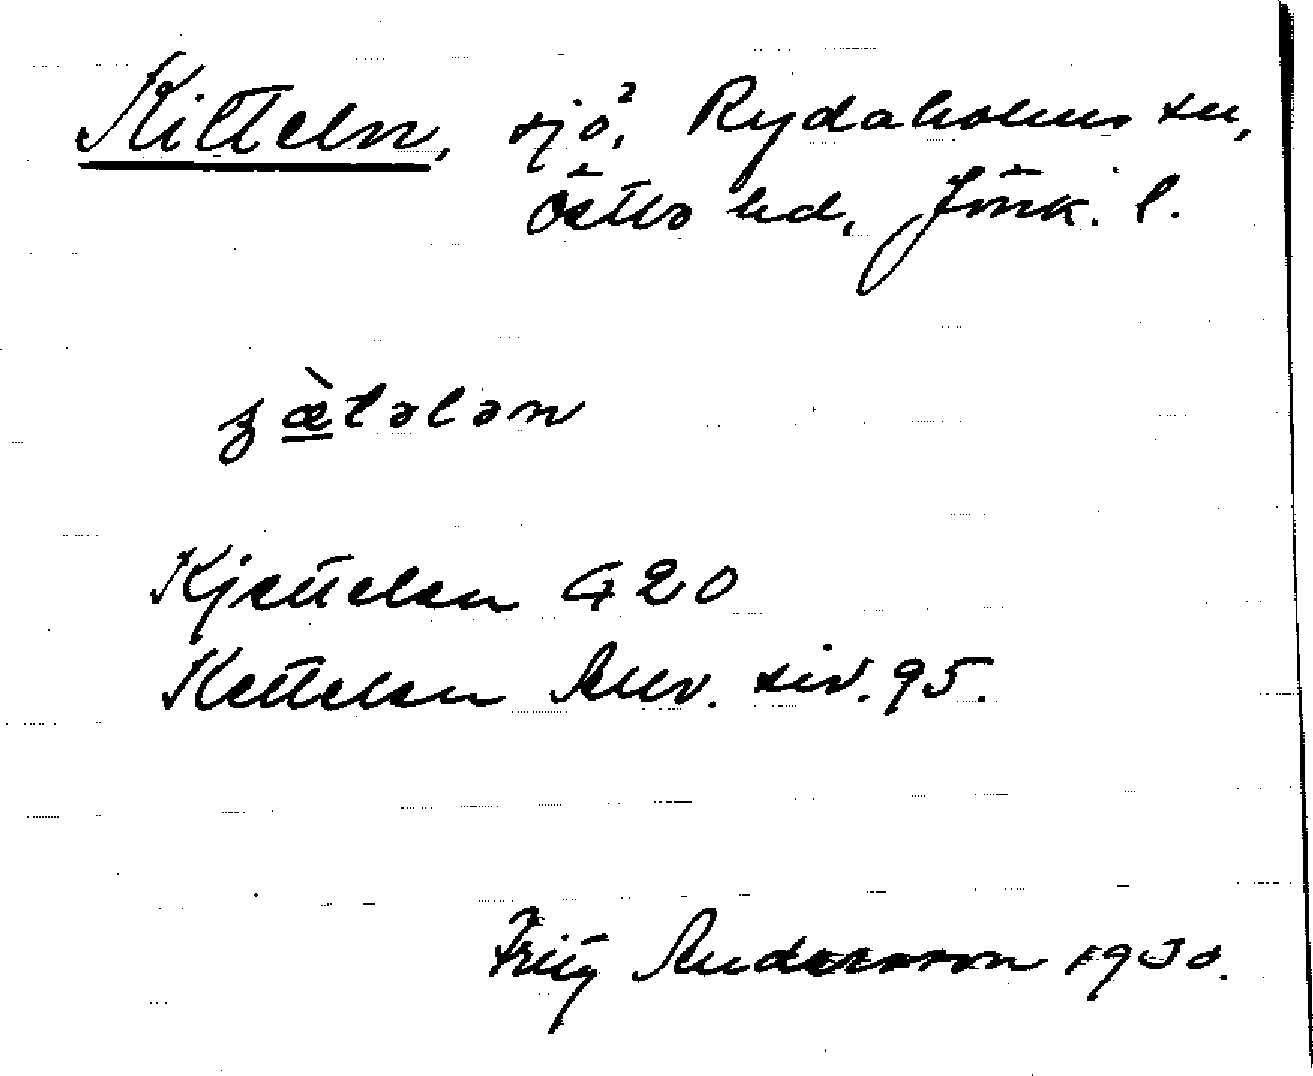 Kitteln, sjö,² Rydaholms sn,
Östbo hd, Jönk. l.
ʒæ̀tələn
Kjettelen G 20
Kettelen Anv. siv. 95.
Fritz Andersson 1930.